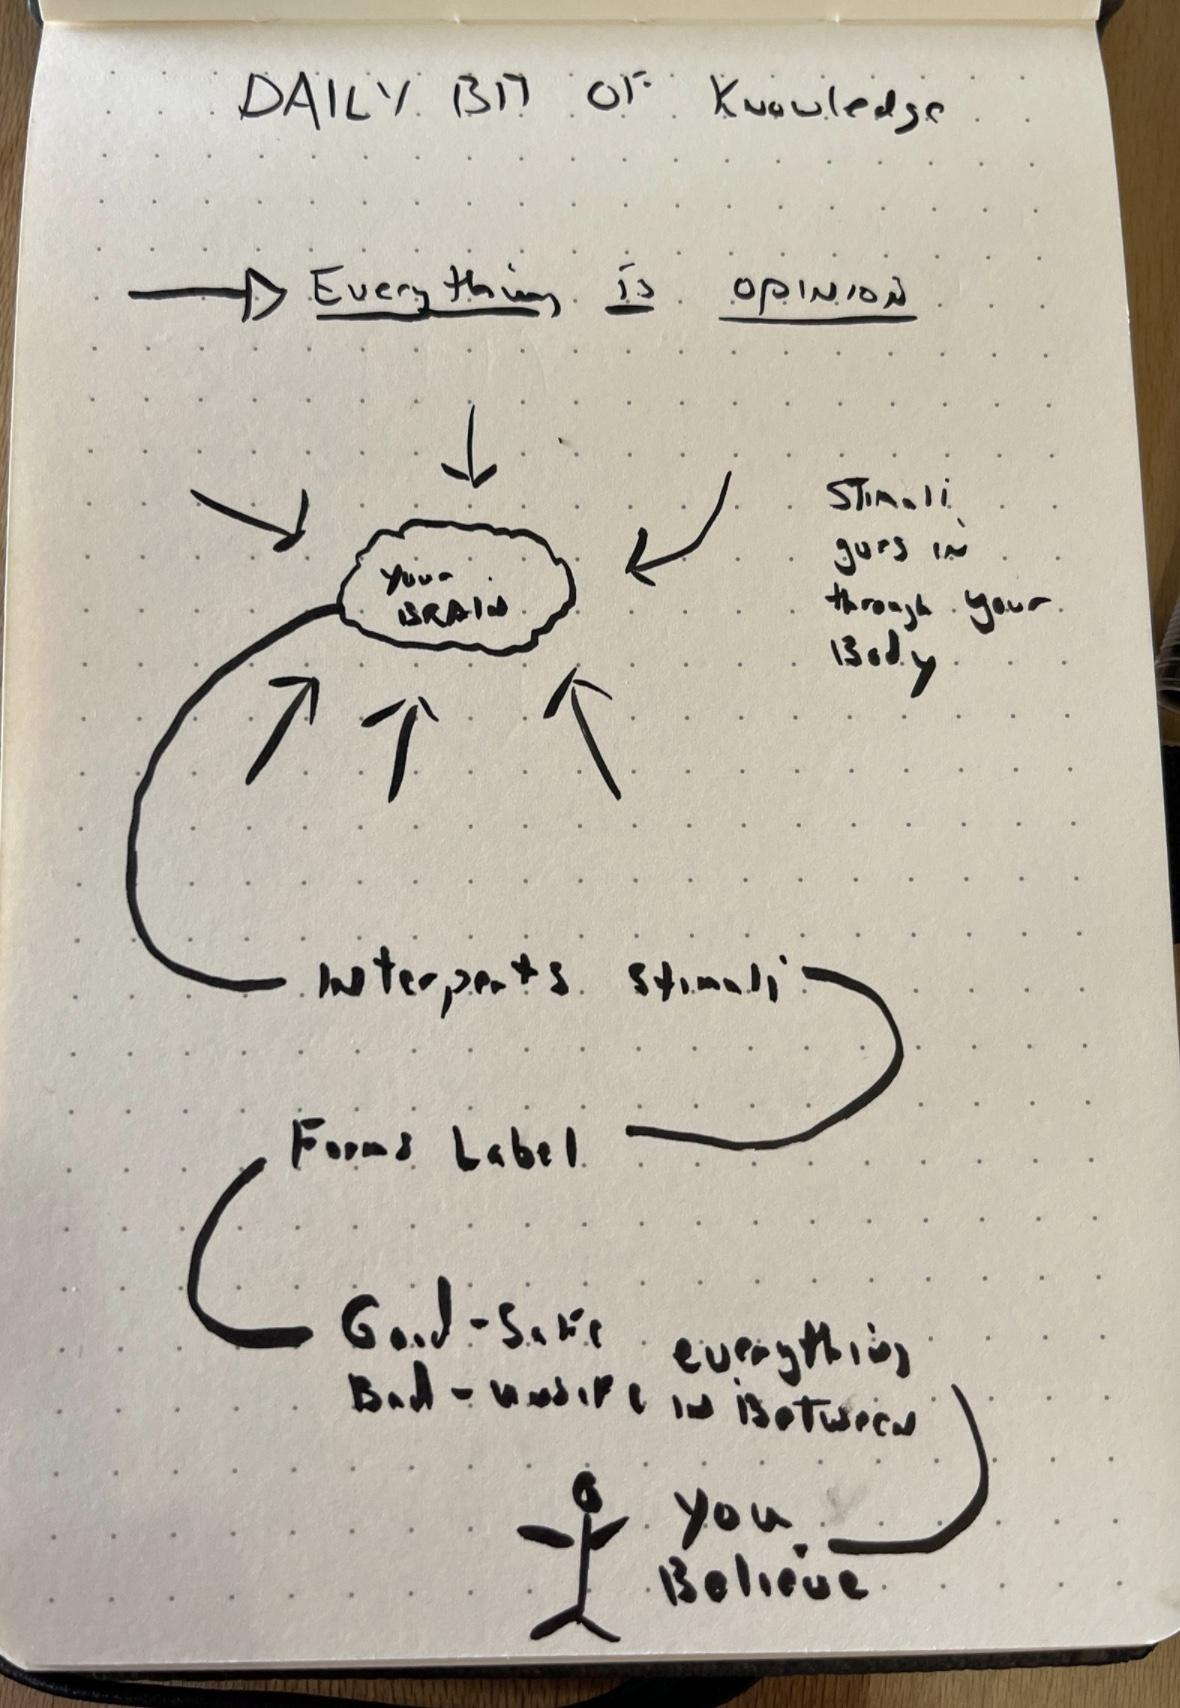 DAILY BIT OF Knowledge
Everything is OPINION
Your
BRAIN
Stimuli
goes in
through your
Body
Interprets stimuli
Forms Label
Good - Safe
Bad - unsafe
everything
in Between
You
Believe